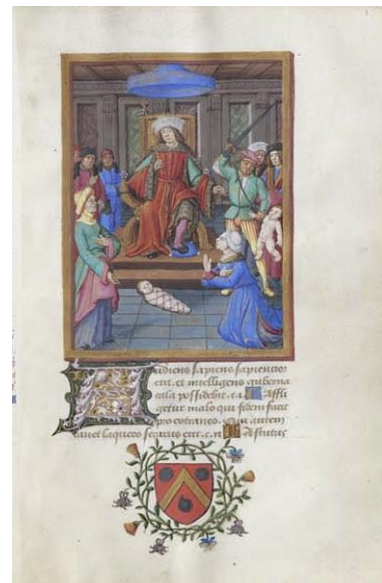 Audiens sapiens sapientior
erit. et intelligens guberna
cula possidebit. c. i. Affli
getur malo qui fidem facit
pro extraneo. Qui autem
cauet laqueos securus erit. c. xi Astutus